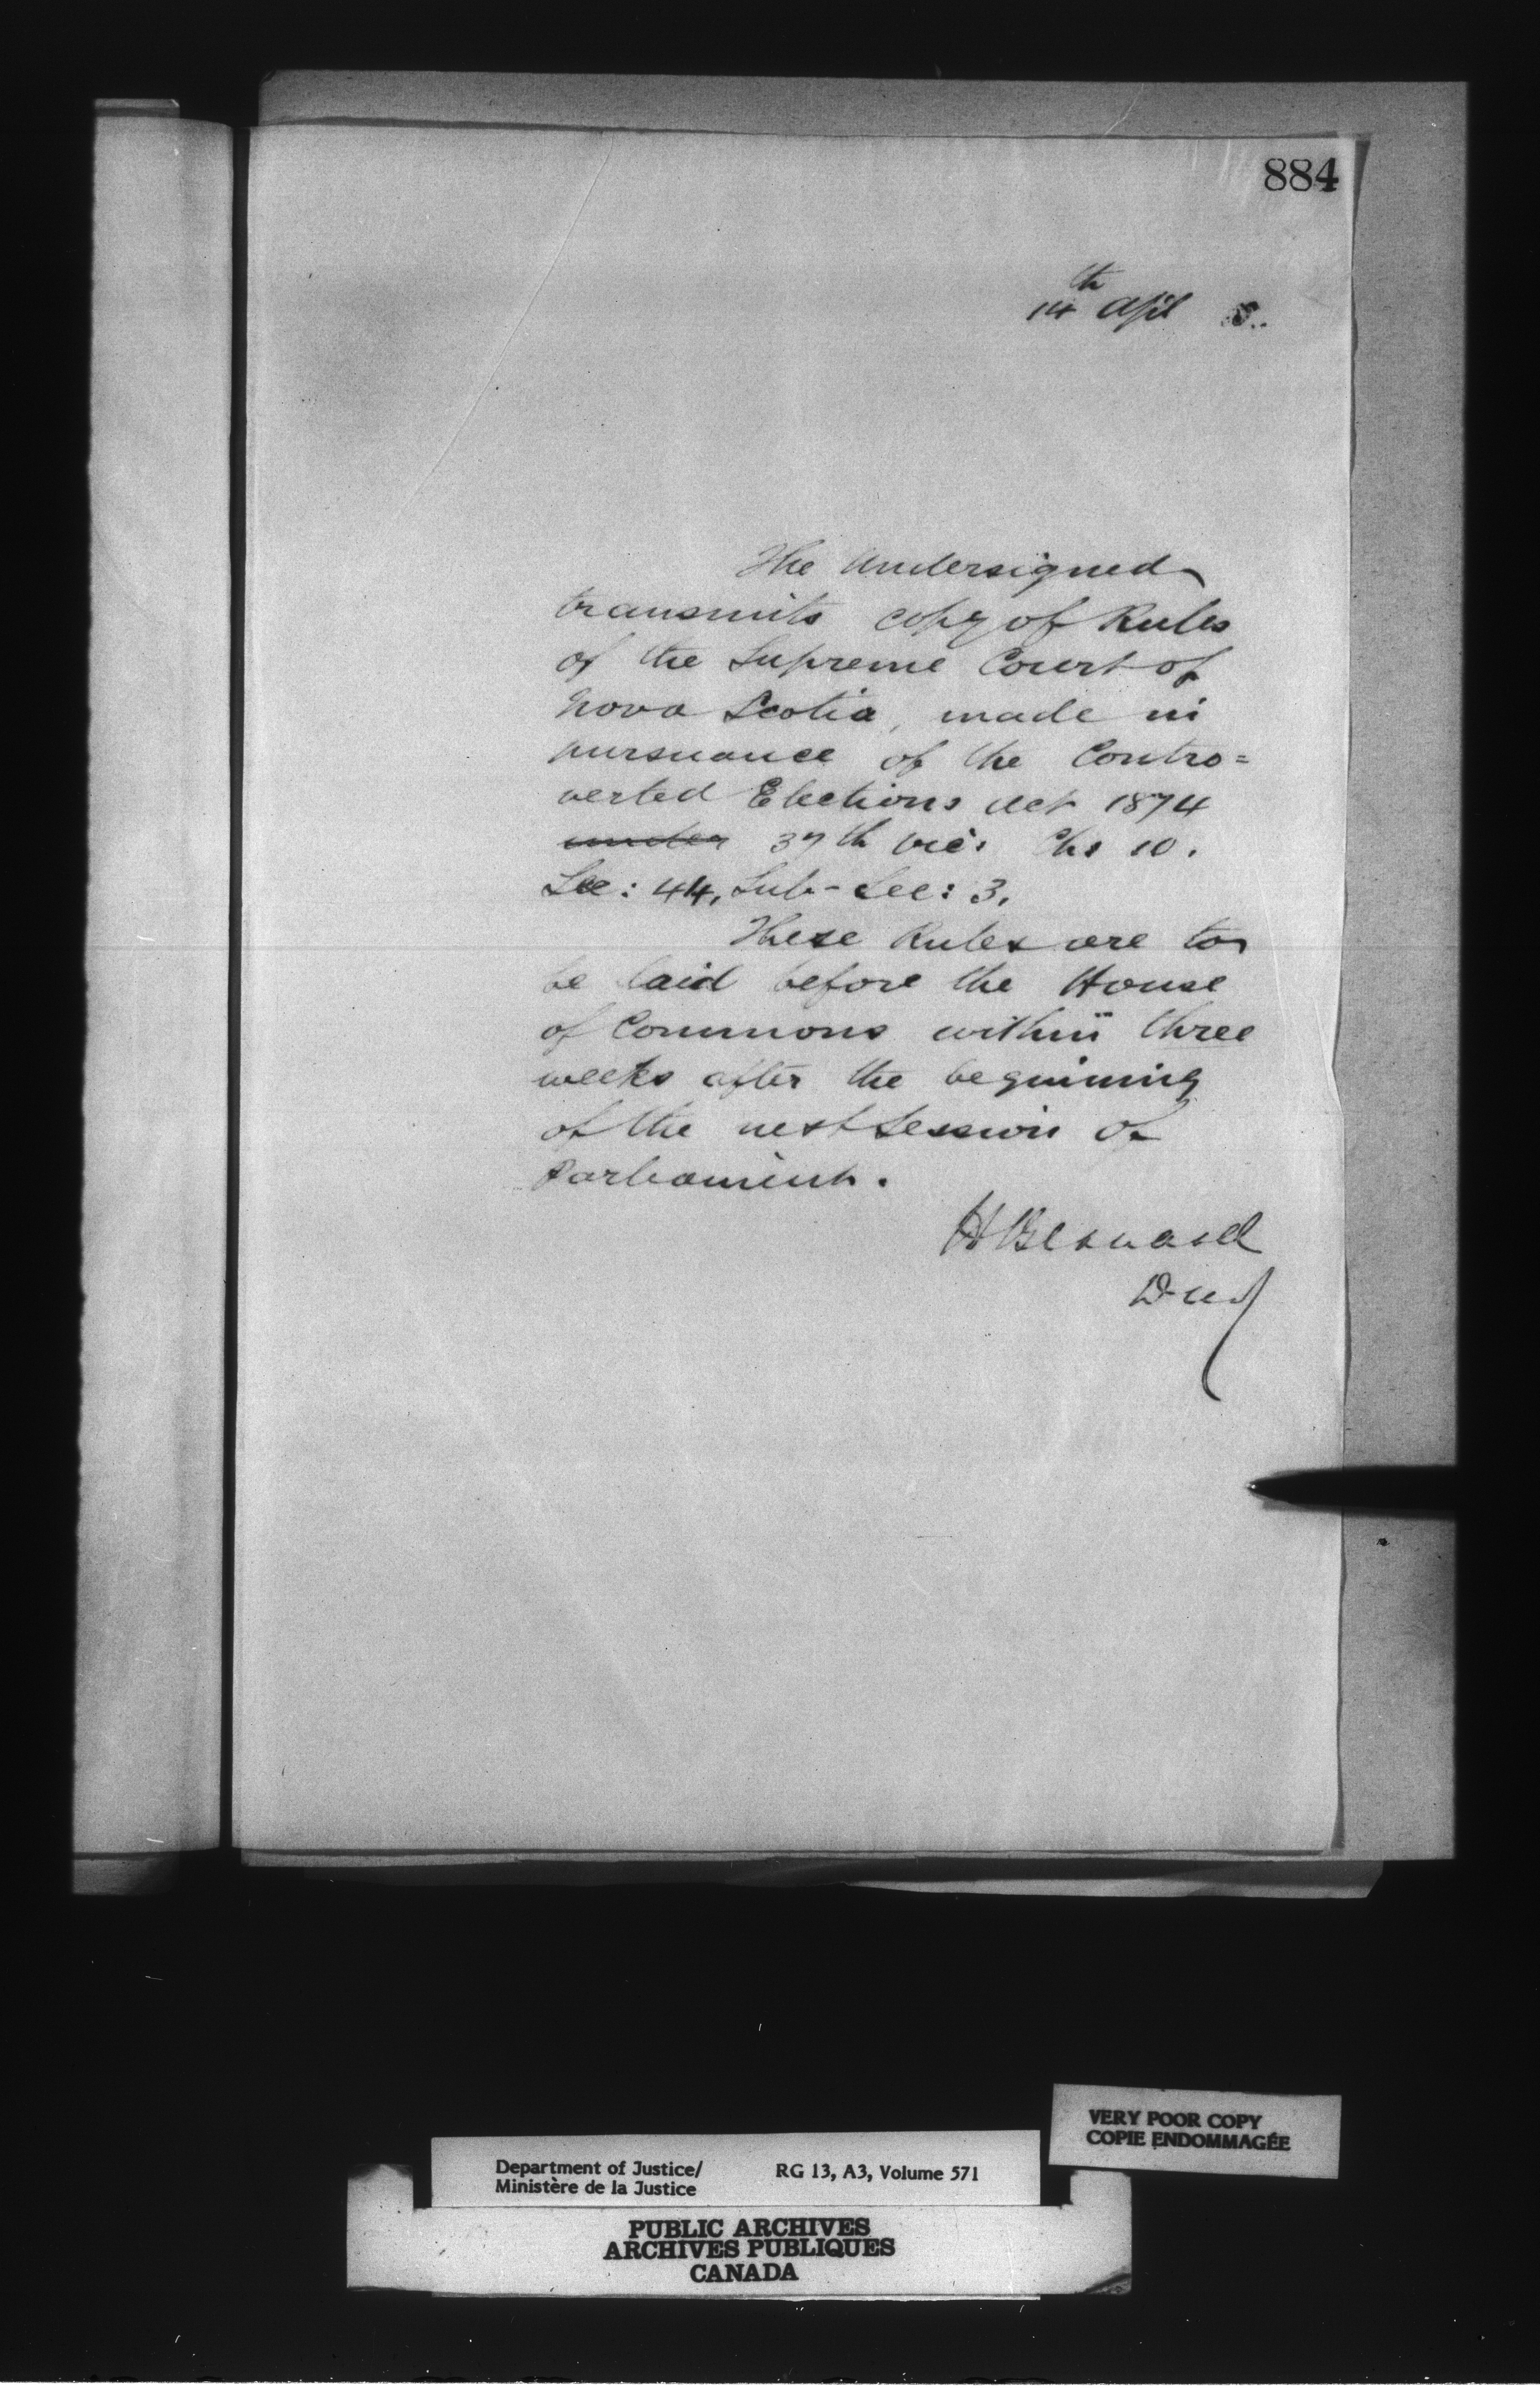 884
14th April 5.
The Undersigned
transmits copy of Rules
of the Supreme Court of
Nova Scotia, made in
pursuance of the Contro=
verted Elections Act 1874
under 37th Vic: Chs 10.
Sec: 44, Sub-Sec: 3.
These Rules are to
be laid before the House
of Commons within three
weeks after the beginning
of the next Session of
Parliament.
H Bernard
VERY POOR COPY
COPIE ENDOMMAGÉE
Department of Justice/ RG 13, A3, Volume 571
Ministère de la Justice
PUBLIC ARCHIVES
ARCHIVES PUBLIQUES
CANADA